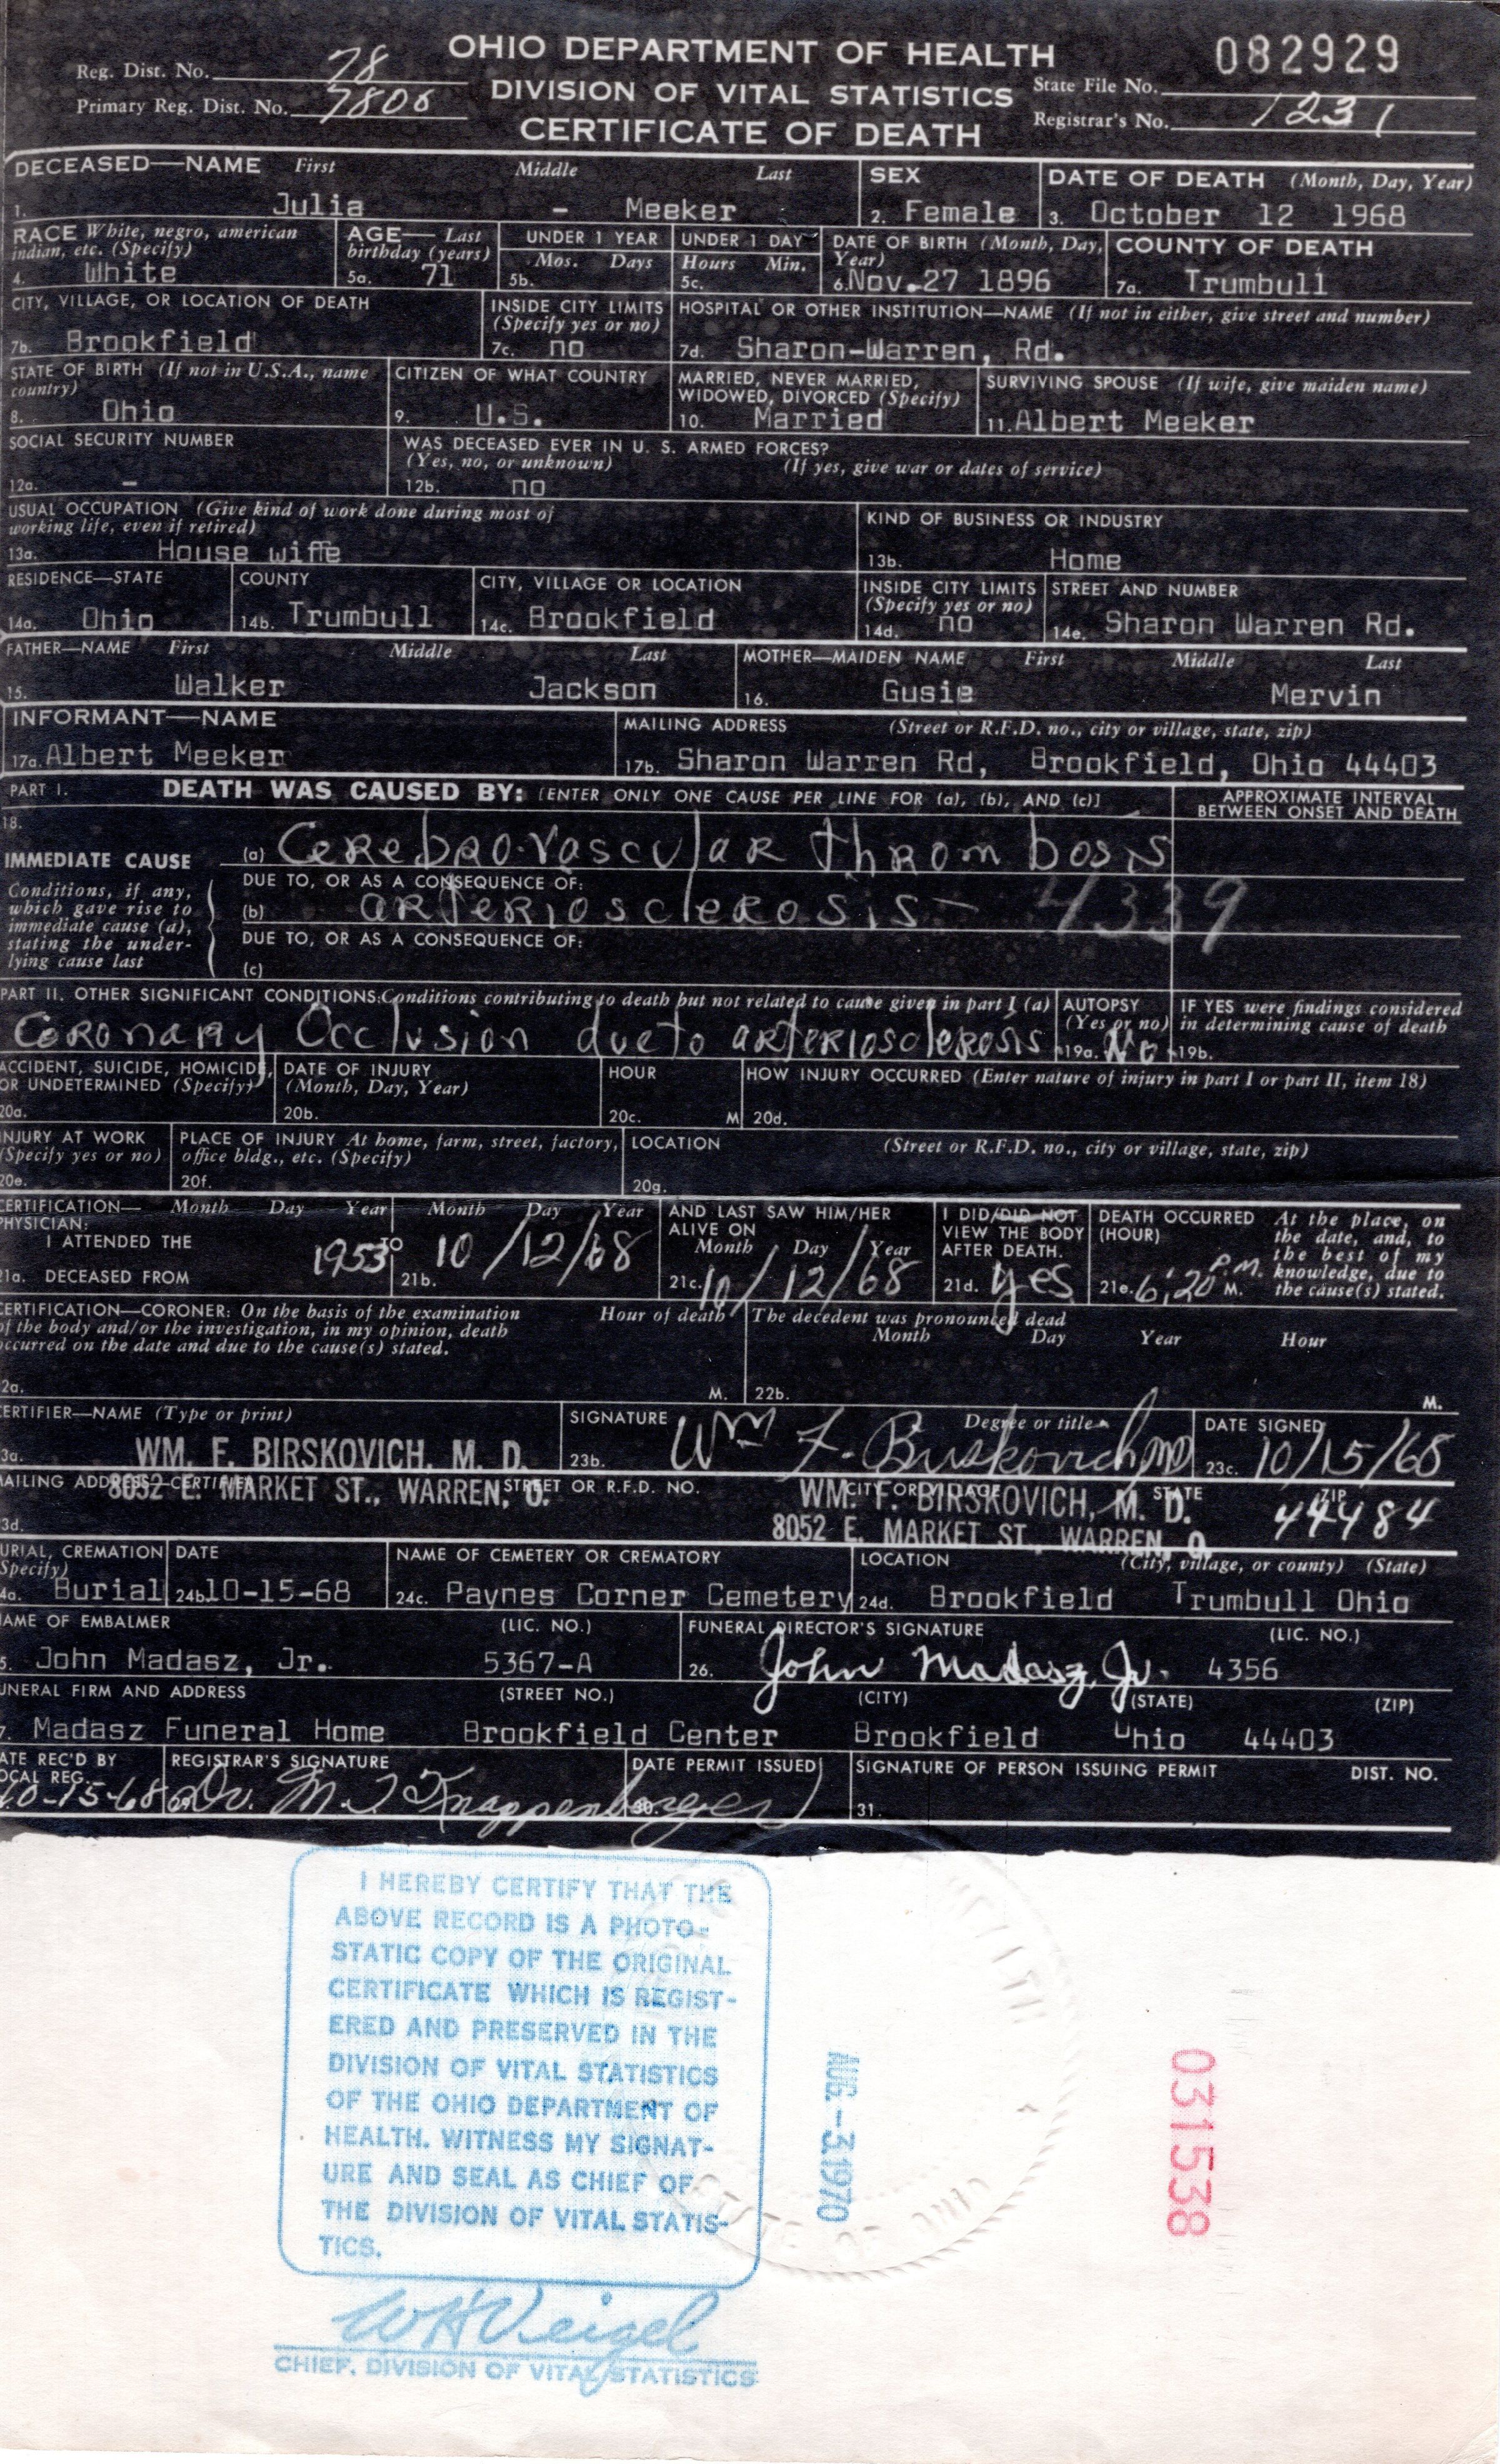 OHIO DEPARTMENT OF HEALTH
DIVISION OF VITAL STATISTICS
CERTIFICATE OF DEATH
Reg. Dist. No. 78
Primary Reg. Dist. No. 7806
082929
State File No.
Registrar's No. 1231
DECEASED—NAME First Middle Last SEX DATE OF DEATH (Month, Day, Year)
1. Julia - Meeker 2. Female 3. October 12 1968
RACE White, negro, american indian, etc. (Specify) AGE—Last birthday (years) UNDER 1 YEAR UNDER 1 DAY DATE OF BIRTH (Month, Day, Year) COUNTY OF DEATH
Mos. Days Hours Min.
4. White 5a. 71 5b. 5c. 6. Nov.27 1896 7a. Trumbull
CITY, VILLAGE, OR LOCATION OF DEATH INSIDE CITY LIMITS (Specify yes or no) HOSPITAL OR OTHER INSTITUTION—NAME (If not in either, give street and number)
7b. Brookfield 7c. no 7d. Sharon-Warren, Rd.
STATE OF BIRTH (If not in U.S.A., name country) CITIZEN OF WHAT COUNTRY MARRIED, NEVER MARRIED, WIDOWED, DIVORCED (Specify) SURVIVING SPOUSE (If wife, give maiden name)
8. Ohio 9. U.S. 10. Married 11. Albert Meeker
SOCIAL SECURITY NUMBER WAS DECEASED EVER IN U. S. ARMED FORCES?
(Yes, no, or unknown) (If yes, give war or dates of service)
12a. - 12b. no
USUAL OCCUPATION (Give kind of work done during most of working life, even if retired) KIND OF BUSINESS OR INDUSTRY
13a. House wiffe 13b. Home
RESIDENCE—STATE COUNTY CITY, VILLAGE OR LOCATION INSIDE CITY LIMITS (Specify yes or no) STREET AND NUMBER
14a. Ohio 14b. Trumbull 14c. Brookfield 14d. no 14e. Sharon Warren Rd.
FATHER—NAME First Middle Last MOTHER—MAIDEN NAME First Middle Last
15. Walker Jackson 16. Gusie Mervin
INFORMANT—NAME MAILING ADDRESS (Street or R.F.D. no., city or village, state, zip)
17a. Albert Meeker 17b. Sharon Warren Rd, Brookfield, Ohio 44403
PART I. DEATH WAS CAUSED BY: [ENTER ONLY ONE CAUSE PER LINE FOR (a), (b), AND (c)] APPROXIMATE INTERVAL BETWEEN ONSET AND DEATH
18.
IMMEDIATE CAUSE (a) Cerebro-vascular thrombosis
DUE TO, OR AS A CONSEQUENCE OF:
Conditions, if any, which gave rise to immediate cause (a), stating the underlying cause last
(b) arteriosclerosis - 4339
DUE TO, OR AS A CONSEQUENCE OF:
(c)
PART II. OTHER SIGNIFICANT CONDITIONS: Conditions contributing to death but not related to cause given in part I (a) AUTOPSY (Yes or no) IF YES were findings considered in determining cause of death
Coronary Occlusion due to arteriosclerosis 19a. No 19b.
ACCIDENT, SUICIDE, HOMICIDE, OR UNDETERMINED (Specify) DATE OF INJURY (Month, Day, Year) HOUR HOW INJURY OCCURRED (Enter nature of injury in part I or part II, item 18)
20a. 20b. 20c. M 20d.
INJURY AT WORK (Specify yes or no) PLACE OF INJURY At home, farm, street, factory, office bldg., etc. (Specify) LOCATION (Street or R.F.D. no., city or village, state, zip)
20e. 20f. 20g.
CERTIFICATION—PHYSICIAN: Month Day Year Month Day Year AND LAST SAW HIM/HER ALIVE ON Month Day Year I DID/DID NOT VIEW THE BODY AFTER DEATH. DEATH OCCURRED (HOUR) At the place, on the date, and, to the best of my knowledge, due to the cause(s) stated.
I ATTENDED THE
21a. DECEASED FROM 1953 TO 21b. 10/12/68 21c. 10/12/68 21d. yes 21e. 6:20 P.M. M.
CERTIFICATION—CORONER: On the basis of the examination of the body and/or the investigation, in my opinion, death occurred on the date and due to the cause(s) stated. Hour of death The decedent was pronounced dead
Month Day Year Hour
22a. M. 22b. M.
CERTIFIER—NAME (Type or print) SIGNATURE Degree or title DATE SIGNED
3a. WM. F. BIRSKOVICH, M. D. 23b. Wm F. Birskovich MD 23c. 10/15/68
MAILING ADDRESS—CERTIFIER STREET OR R.F.D. NO. CITY OR VILLAGE STATE ZIP
8052 E. MARKET ST., WARREN, O. WM. F. BIRSKOVICH, M. D.
3d. 8052 E. MARKET ST., WARREN, O. 44484
BURIAL, CREMATION (Specify) DATE NAME OF CEMETERY OR CREMATORY LOCATION (City, village, or county) (State)
4a. Burial 24b. 10-15-68 24c. Paynes Corner Cemetery 24d. Brookfield Trumbull Ohio
NAME OF EMBALMER (LIC. NO.) FUNERAL DIRECTOR'S SIGNATURE (LIC. NO.)
5. John Madasz, Jr. 5367-A 26. John Madasz, Jr. 4356
FUNERAL FIRM AND ADDRESS (STREET NO.) (CITY) (STATE) (ZIP)
7. Madasz Funeral Home Brookfield Center Brookfield Ohio 44403
DATE REC'D BY LOCAL REG. REGISTRAR'S SIGNATURE DATE PERMIT ISSUED SIGNATURE OF PERSON ISSUING PERMIT DIST. NO.
10-15-68 29. Dr. M. J. Knappenberger 30. 31.
I HEREBY CERTIFY THAT THE
ABOVE RECORD IS A PHOTO-
STATIC COPY OF THE ORIGINAL
CERTIFICATE WHICH IS REGIST-
ERED AND PRESERVED IN THE
DIVISION OF VITAL STATISTICS
OF THE OHIO DEPARTMENT OF
HEALTH. WITNESS MY SIGNAT-
URE AND SEAL AS CHIEF OF
THE DIVISION OF VITAL STATIS-
TICS.
W H Veigel
CHIEF, DIVISION OF VITAL STATISTICS
AUG.-3 1970
031538
STATE OF OHIO